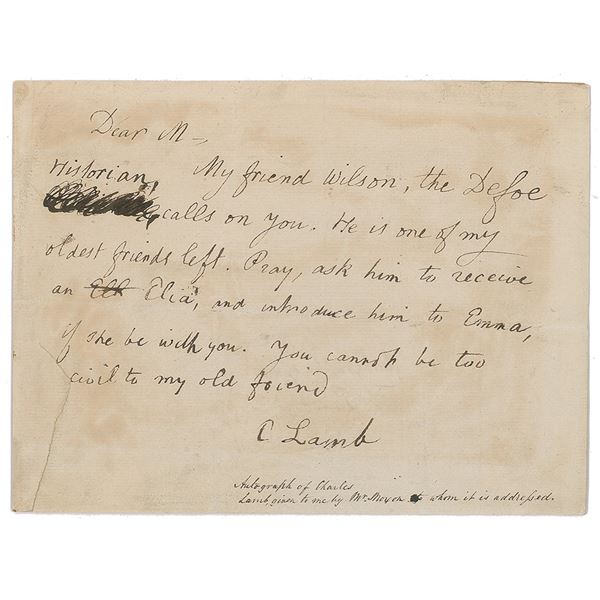 Dear M—,
My friend Wilson, the Defoe
Historian, calls on you. He is one of my
oldest friends left. Pray, ask him to receive
an Eli Elia, and introduce him to Emma,
if she be with you. You cannot be too
civil to my old friend
C Lamb
Autograph of Charles
Lamb, given to me by Mr. Moxon to whom it is addressed.